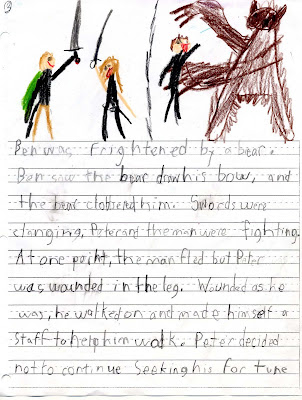 Ben was frightened by a bear.
Ben saw the bear draw his bow, and
the bear clobered him. Swords were
clanging, Peter and the man were fighting.
At one point, the man fled but Peter
was wounded in the leg. Wounded as he
was, he walked on and made himself a
staff to help him walk. Peter decided
not to continue seeking his fortune